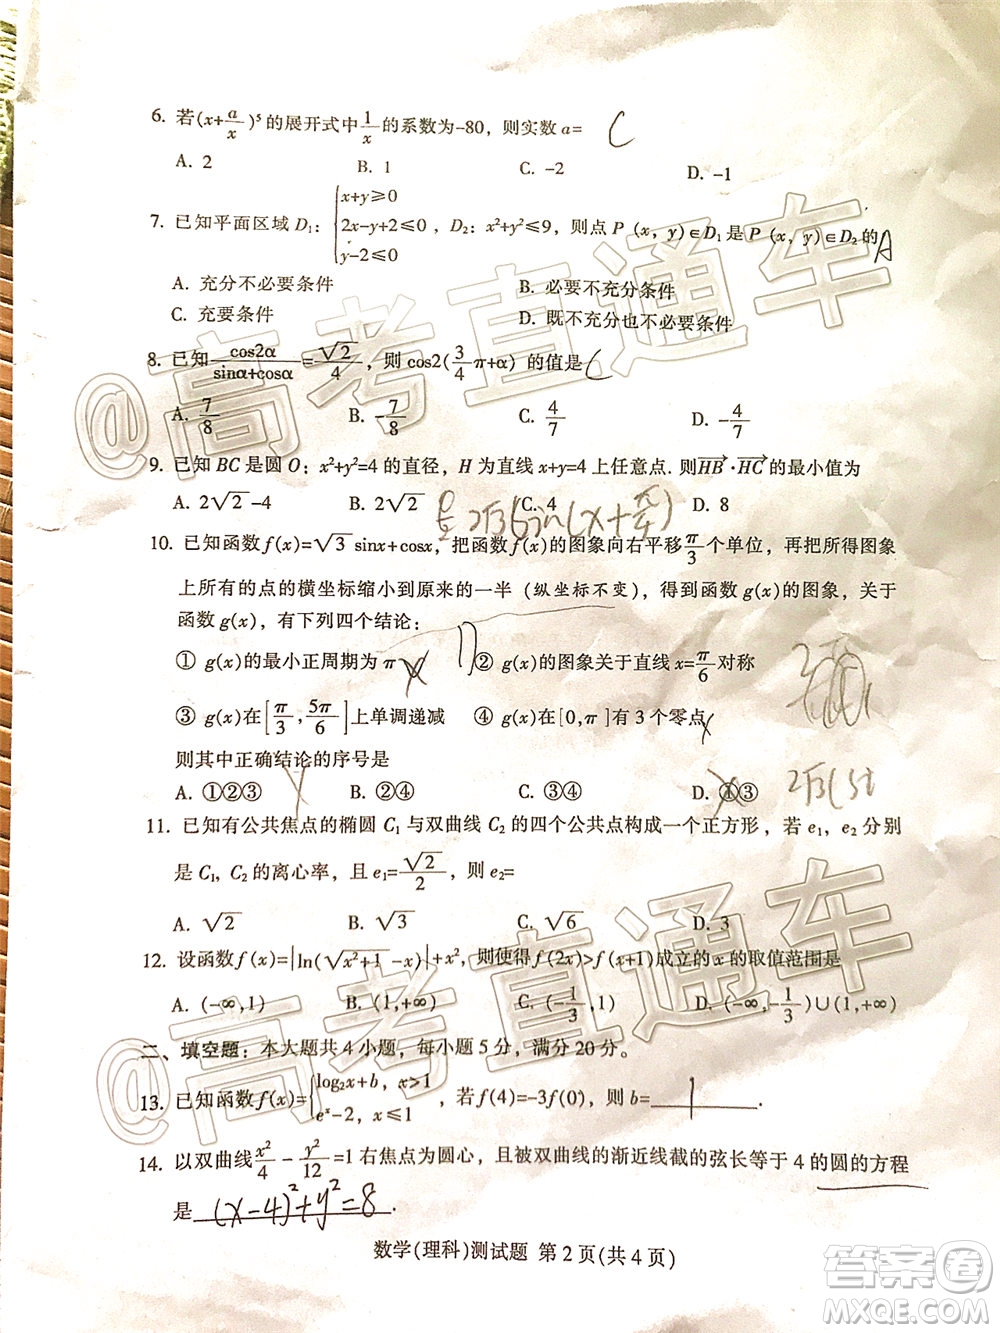 6. 若(x+a/x)⁵的展开式中1/x的系数为-80，则实数 a= C
A. 2 B. 1 C. -2 D. -1
7. 已知平面区域 D₁：{x+y≥0 2x-y+2≤0 y-2≤0，D₂：x²+y²≤9，则点 P（x，y）∈D₁ 是 P（x，y）∈D₂ 的 A
A. 充分不必要条件 B. 必要不充分条件
C. 充要条件 D. 既不充分也不必要条件
8. 已知cos2α/(sinα+cosα)=√2/4，则 cos2(3/4π+α) 的值是 C
A. 7/8 B. -7/8 C. 4/7 D. -4/7
9. 已知 BC 是圆 O：x²+y²=4 的直径，H 为直线 x+y=4 上任意点. 则HB·HC的最小值为
A. 2√2-4 B. 2√2 C. 4 D. 8
10. 已知函数 f(x)=√3 sinx+cosx，把函数 f(x)的图象向右平移π/3个单位，再把所得图象
上所有的点的横坐标缩小到原来的一半（纵坐标不变），得到函数 g(x)的图象，关于
函数 g(x)，有下列四个结论：
① g(x)的最小正周期为 π ② g(x)的图象关于直线 x=π/6 对称
③ g(x)在[π/3，5π/6]上单调递减 ④ g(x)在[0,π]有 3 个零点
则其中正确结论的序号是
A. ①②③ B. ②④ C. ②③④ D. ①③
11. 已知有公共焦点的椭圆 C₁ 与双曲线 C₂ 的四个公共点构成一个正方形，若 e₁，e₂ 分别
是 C₁，C₂ 的离心率，且 e₁=√2/2，则 e₂=
A. √2 B. √3 C. √6 D. 3
12. 设函数 f(x)=|ln(√x²+1-x)|+x²，则使得 f(2x)>f(x+1)成立的 x 的取值范围是
A. (-∞,1) B. (1,+∞) C. (-1/3,1) D. (-∞,-1/3)∪(1,+∞)
二、填空题：本大题共 4 小题，每小题 5 分，满分 20 分。
13. 已知函数 f(x)={log₂x+b，x>1 eˣ-2，x≤1，若 f(4)=-3f(0)，则 b= 1 .
14. 以双曲线x²/4-y²/12=1 右焦点为圆心，且被双曲线的渐近线截的弦长等于 4 的圆的方程
是 (x-4)²+y²=8 .
数学(理科)测试题 第 2 页(共 4 页)
@高考直通车
@高考直通车
答案卷
MXQE.COM